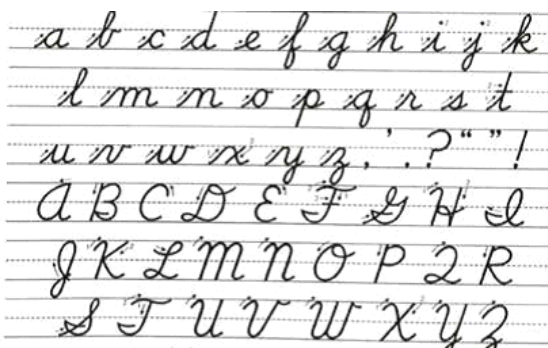 a b c d e f g h i j k
l m n o p q r s t
u v w x y z , ' . ? “ ” !
A B C D E F G H I
J K L M N O P Q R
S T U V W X Y Z